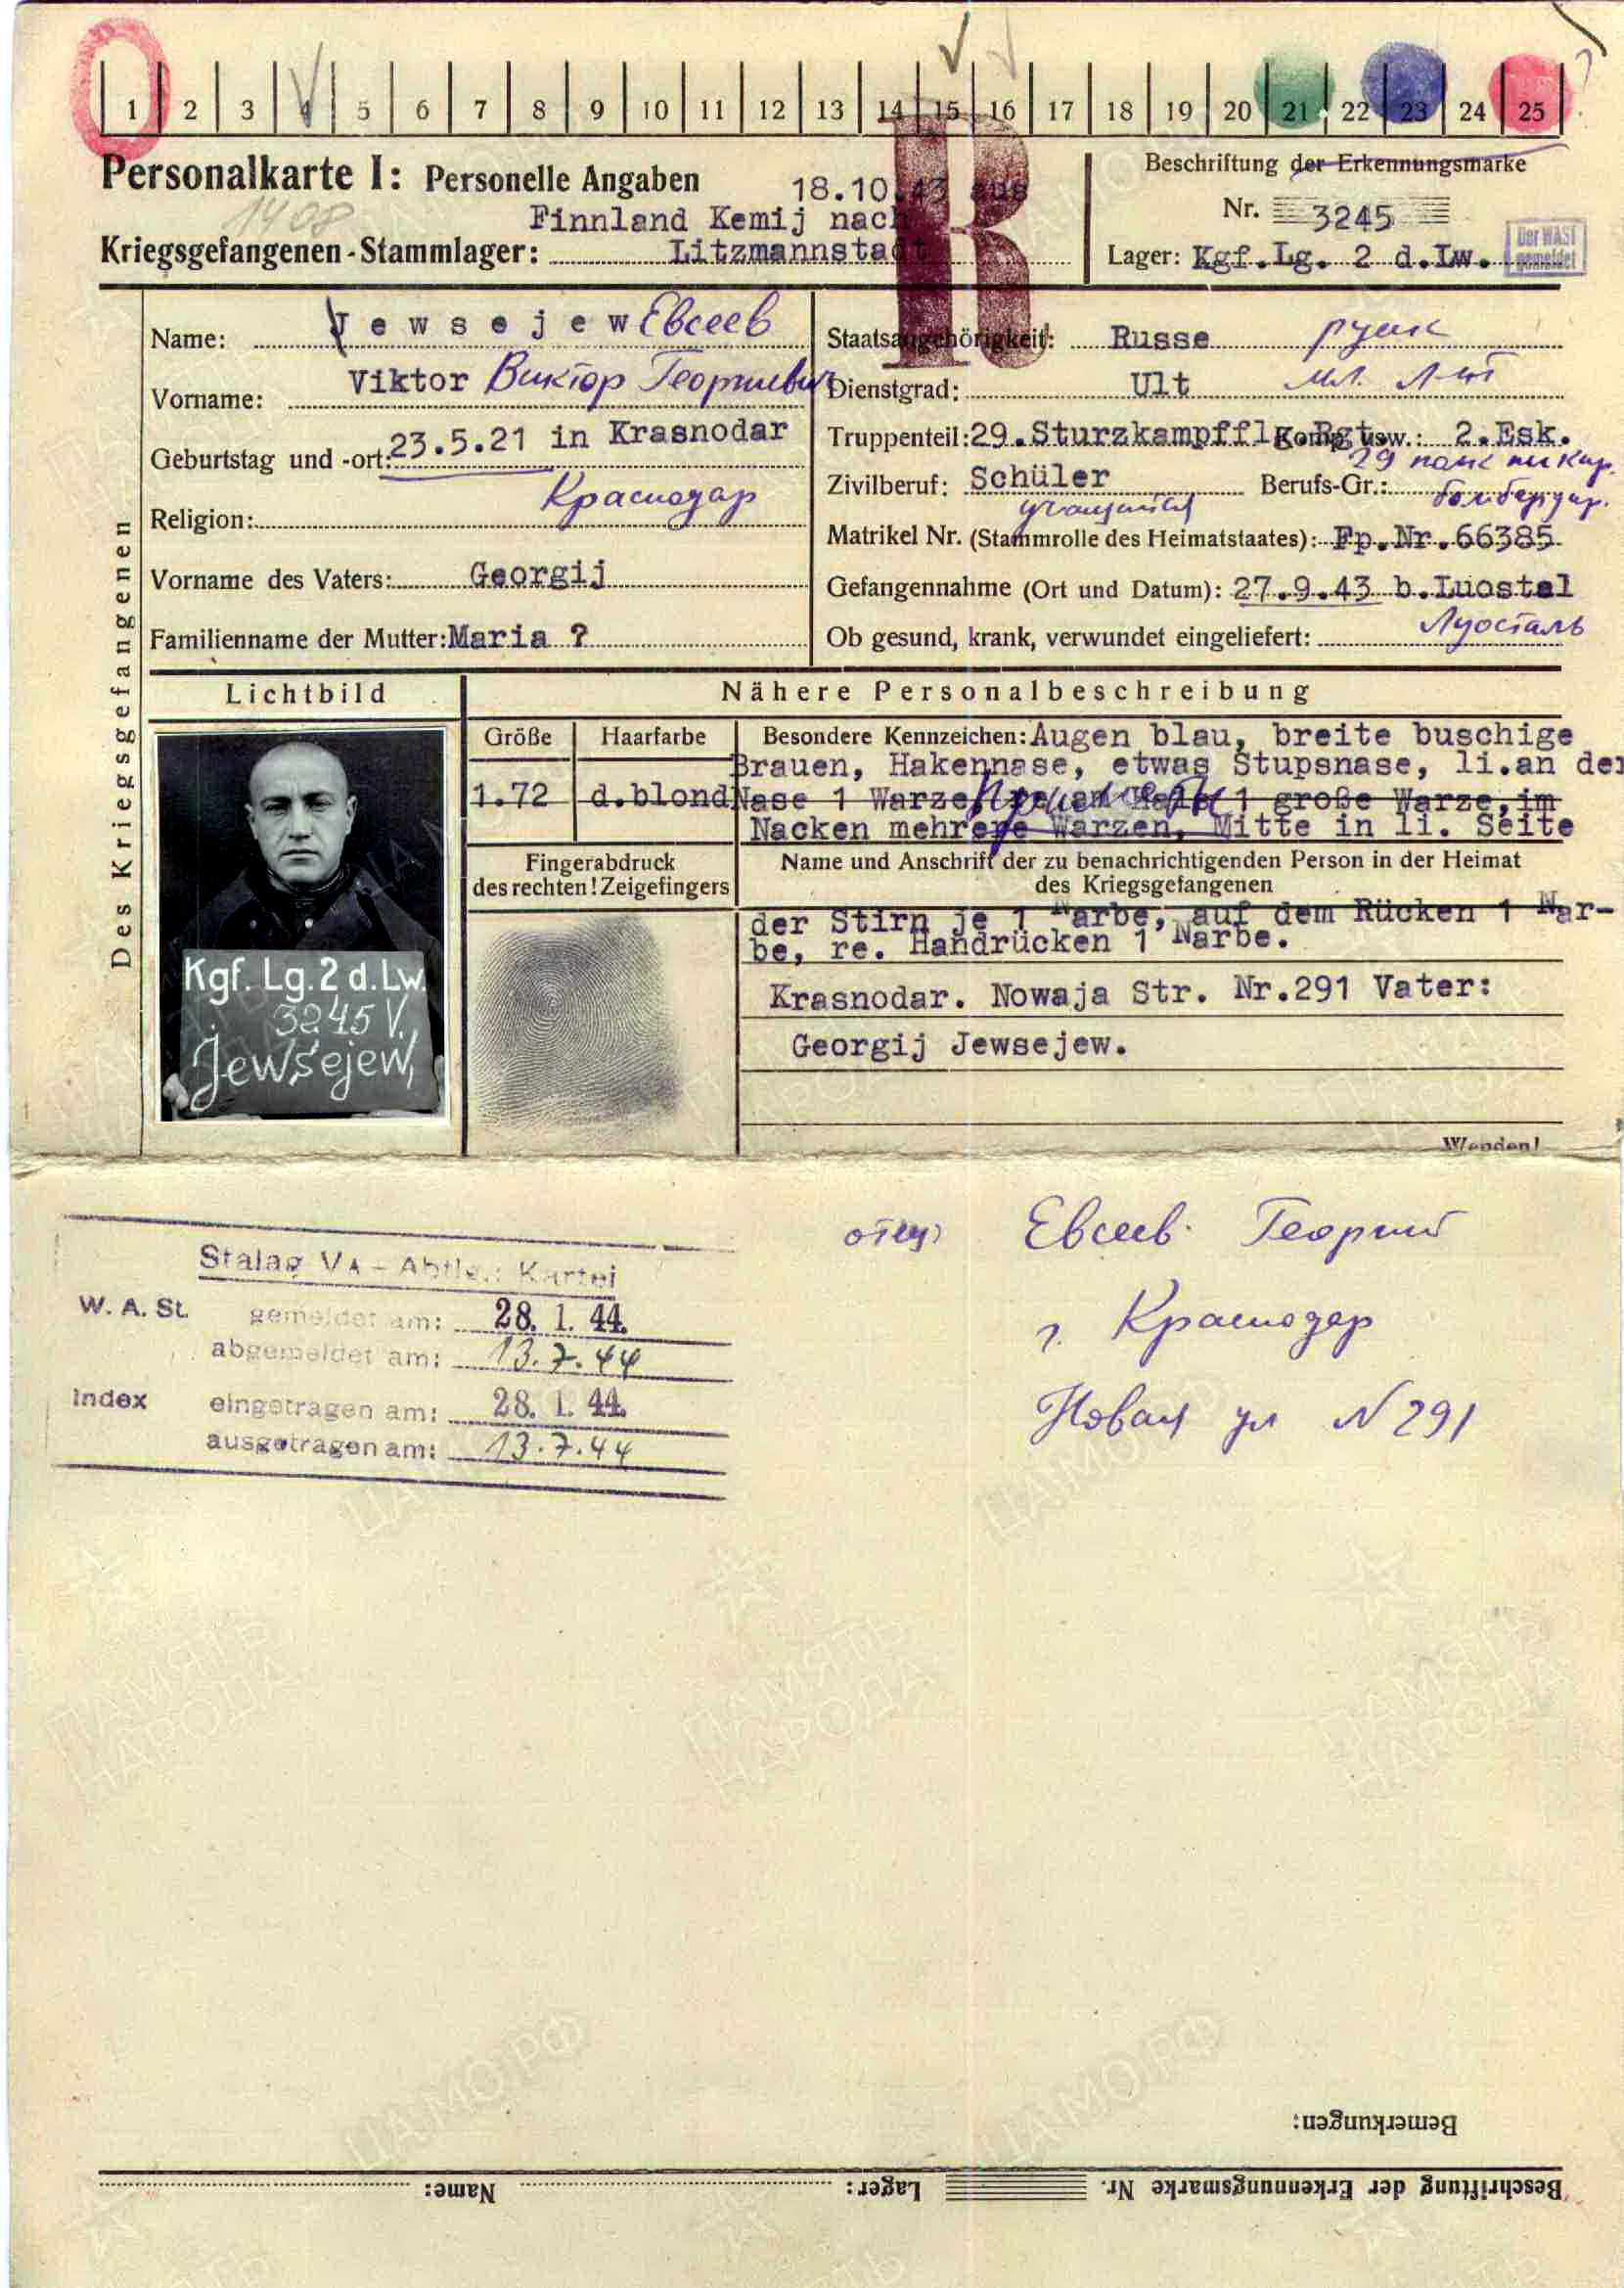 1 2 3 4 5 6 7 8 9 10 11 12 13 14 15 16 17 18 19 20 21 22 23 24 25
Personalkarte I: Personelle Angaben
18.10.43 aus
Beschriftung der Erkennungsmarke
1408
Finnland Kemij nach
Nr. 3245
Kriegsgefangenen-Stammlager: Litzmannstadt
Lager: Kgf.Lg. 2 d.Lw.
Der WASt
gemeldet
R
Des Kriegsgefangenen
Name: Jewsejew Евсеев
Vorname: Viktor Виктор Георгиевич
Geburtstag und -ort: 23.5.21 in Krasnodar
Краснодар
Religion:
Vorname des Vaters: Georgij
Familienname der Mutter: Maria ?
Staatsangehörigkeit: Russe русск
Dienstgrad: Ult мл. л-т
Truppenteil: 29.Sturzkampfflg.Rgt Komp. usw.: 2.Esk.
29 полк пикир.
Zivilberuf: Schüler Berufs-Gr.: бомбардир.
учащийся
Matrikel Nr. (Stammrolle des Heimatstaates): Fp.Nr.66385
Gefangennahme (Ort und Datum): 27.9.43 b.Luostal
Луосталь
Ob gesund, krank, verwundet eingeliefert:
Lichtbild
Nähere Personalbeschreibung
Größe
1.72
Haarfarbe
d.blond
Besondere Kennzeichen: Augen blau, breite buschige
Brauen, Hakennase, etwas Stupsnase, li.an der
Nase 1 Warze, 1 große Warze, im
Nacken mehrere Warzen, Mitte in li. Seite
Fingerabdruck
des rechten! Zeigefingers
Name und Anschrift der zu benachrichtigenden Person in der Heimat
des Kriegsgefangenen
der Stirn je 1 Narbe, auf dem Rücken 1 Nar-
be, re. Handrücken 1 Narbe.
Krasnodar. Nowaja Str. Nr.291 Vater:
Georgij Jewsejew.
Kgf. Lg. 2 d. Lw.
3245 V.
Jewsejew,
Wenden!
Stalag VA - Abtlg.: Kartei
W. A. St. gemeldet am: 28. 1. 44.
abgemeldet am: 13.7.44
Index eingetragen am: 28. 1. 44.
ausgetragen am: 13.7.44
отец Евсеев Георгий
г. Краснодар
Новая ул N 291
Bemerkungen:
Beschriftung der Erkennungsmarke Nr. Lager: Name:
ПАМЯТЬ
НАРОДА
ЦАМО.РФ